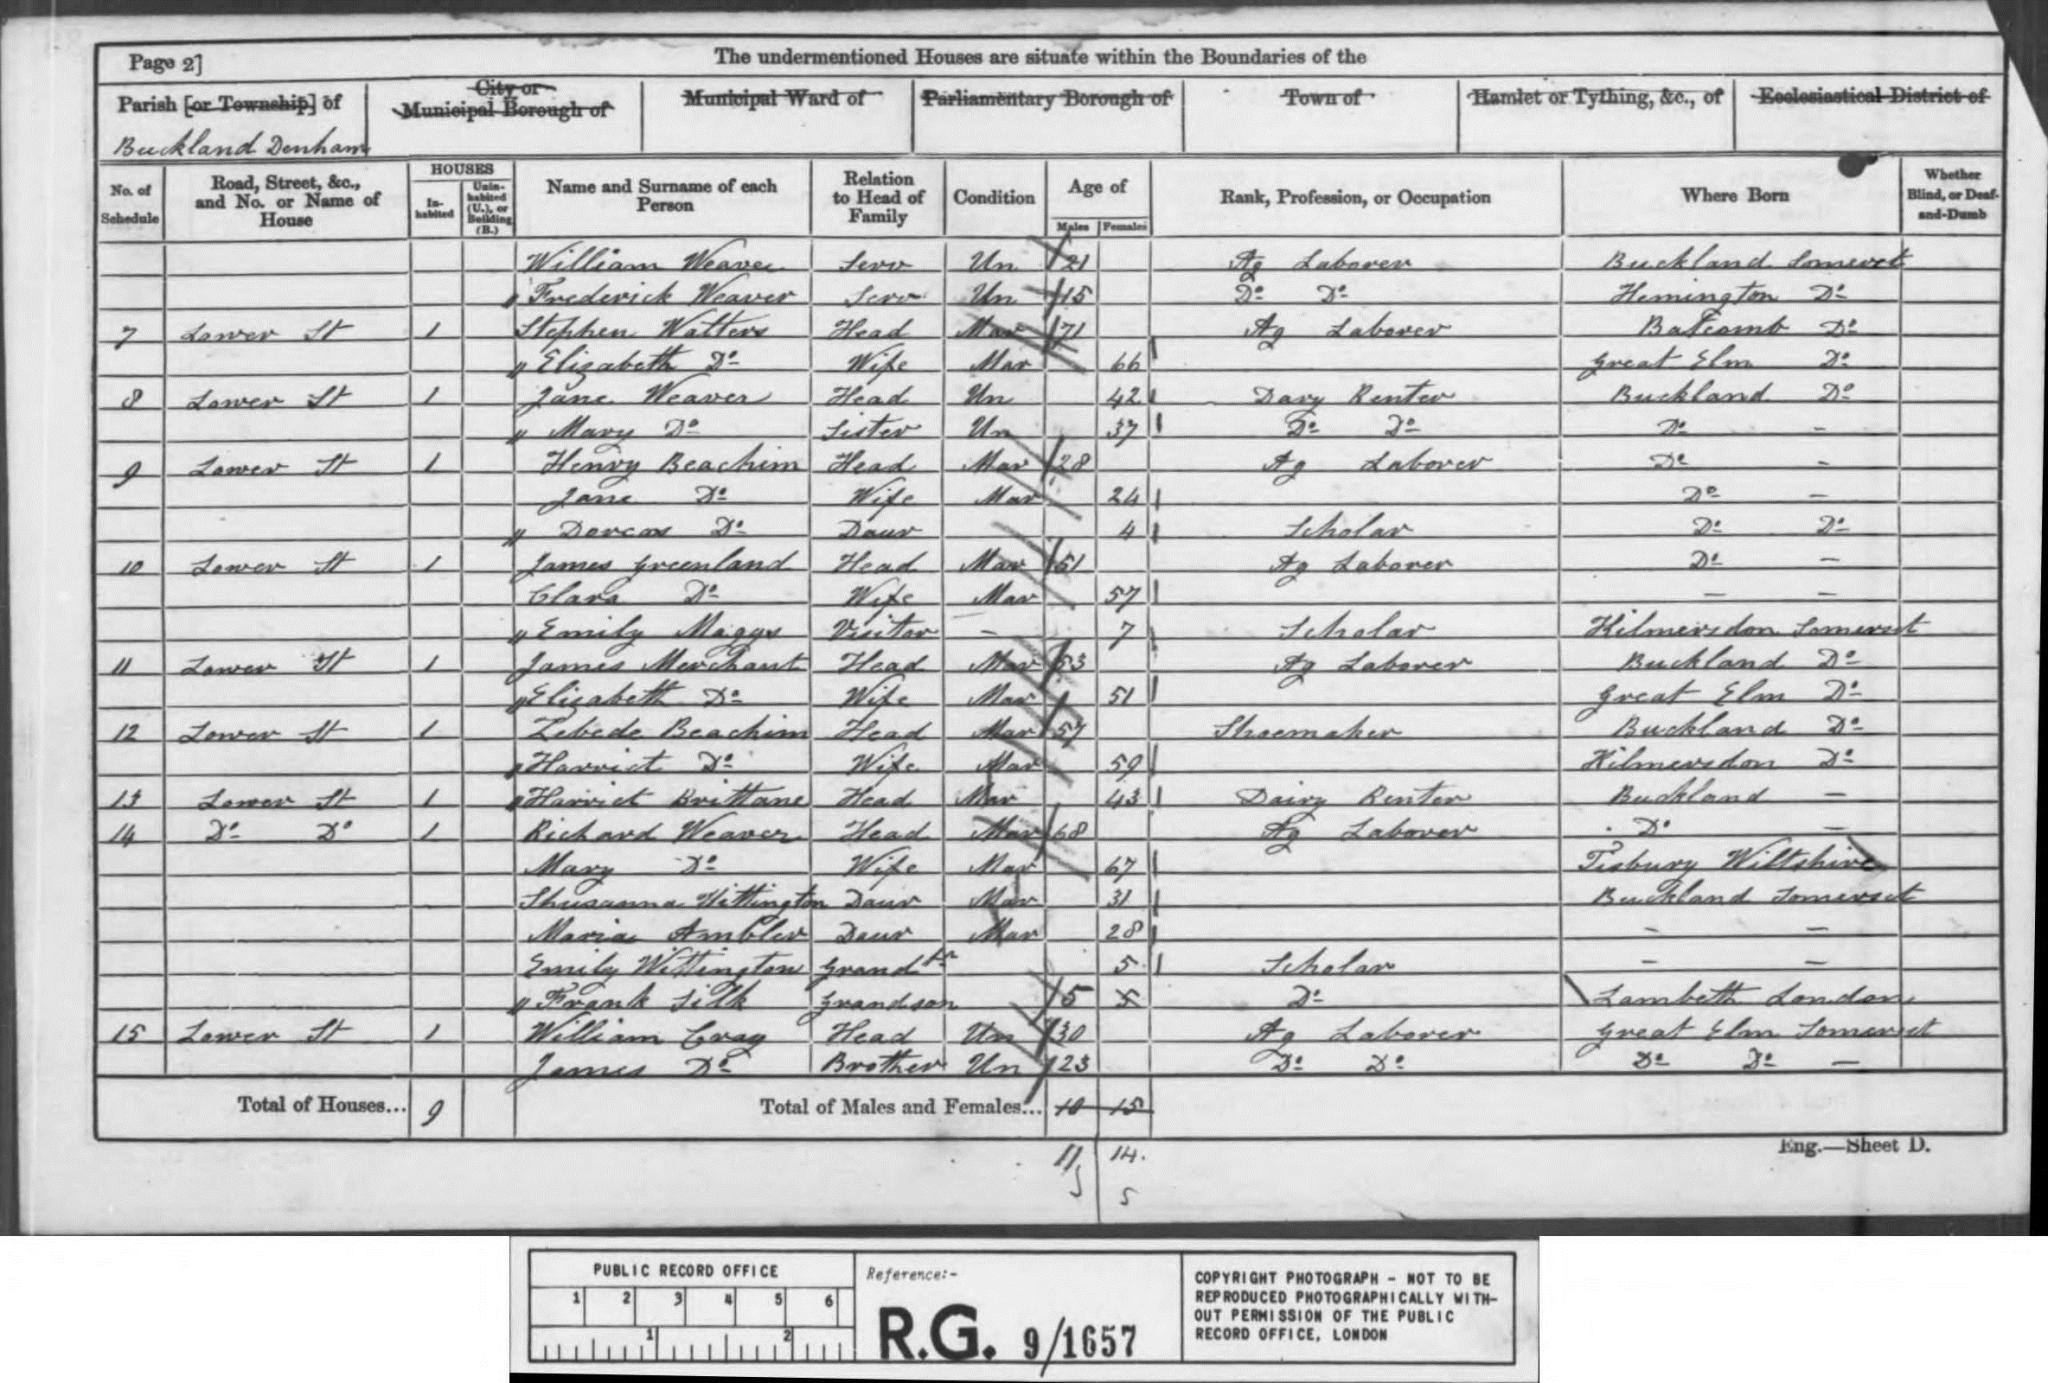 Page 2] The undermentioned Houses are situate within the Boundaries of the
Parish [or Township] of City or Municipal Borough of Municipal Ward of Parliamentary Borough of Town of Hamlet or Tything, &c., of Ecclesiastical District of
Buckland Denham
No. of Schedule Road, Street, &c., and No. or Name of House HOUSES Inhabited Uninhabited (U.), or Building (B.) Name and Surname of each Person Relation to Head of Family Condition Age of Males Females Rank, Profession, or Occupation Where Born Whether Blind, or Deaf-and-Dumb
William Weaver Serv Un 21 Ag Laborer Buckland Somerset
" Frederick Weaver Serv Un 15 Do Do Hemington Do
7 Lower St 1 Stephen Watters Head Mar 71 Ag Laborer Batcomb Do
" Elizabeth Do Wife Mar 66 Great Elm Do
8 Lower St 1 Jane Weaver Head Un 42 Dary Renter Buckland Do
" Mary Do Sister Un 37 Do Do Do -
9 Lower St 1 Henry Beachim Head Mar 28 Ag Laborer Do -
Jane Do Wife Mar 24 Do -
" Dorcas Do Daur 4 Scholar Do Do
10 Lower St 1 James Greenland Head Mar 51 Ag Laborer Do -
Clara Do Wife Mar 57 - -
" Emily Maggs Visitor - 7 Scholar Kilmersdon Somerset
11 Lower St 1 James Merchant Head Mar 53 Ag Laborer Buckland Do
" Elizabeth Do Wife Mar 51 Great Elm Do
12 Lower St 1 Zebede Beachim Head Mar 57 Shoemaker Buckland Do
" Harriet Do Wife Mar 59 Kilmersdon Do
13 Lower St 1 " Harriet Brittane Head Mar 43 Dairy Renter Buckland -
14 Do Do 1 Richard Weaver Head Mar 68 Ag Laborer Do -
Mary Do Wife Mar 67 Tisbury Wiltshire
Shusanna Wittington Daur Mar 31 Buckland Somerset
Maria Ambler Daur Mar 28 - -
Emily Wittington Grand dr 5 Scholar - -
" Frank Silk Grandson 5 5 Do Lambeth London
15 Lower St 1 William Cray Head Un 30 Ag Laborer Great Elm Somerset
James Do Brother Un 23 Do Do Do Do -
Total of Houses... 9 Total of Males and Females... 10 15
11 14.
5 5
Eng.—Sheet D.
PUBLIC RECORD OFFICE
1 2 3 4 5 6
1 2
Reference:-
R.G. 9/1657
COPYRIGHT PHOTOGRAPH - NOT TO BE
REPRODUCED PHOTOGRAPHICALLY WITH-
OUT PERMISSION OF THE PUBLIC
RECORD OFFICE, LONDON